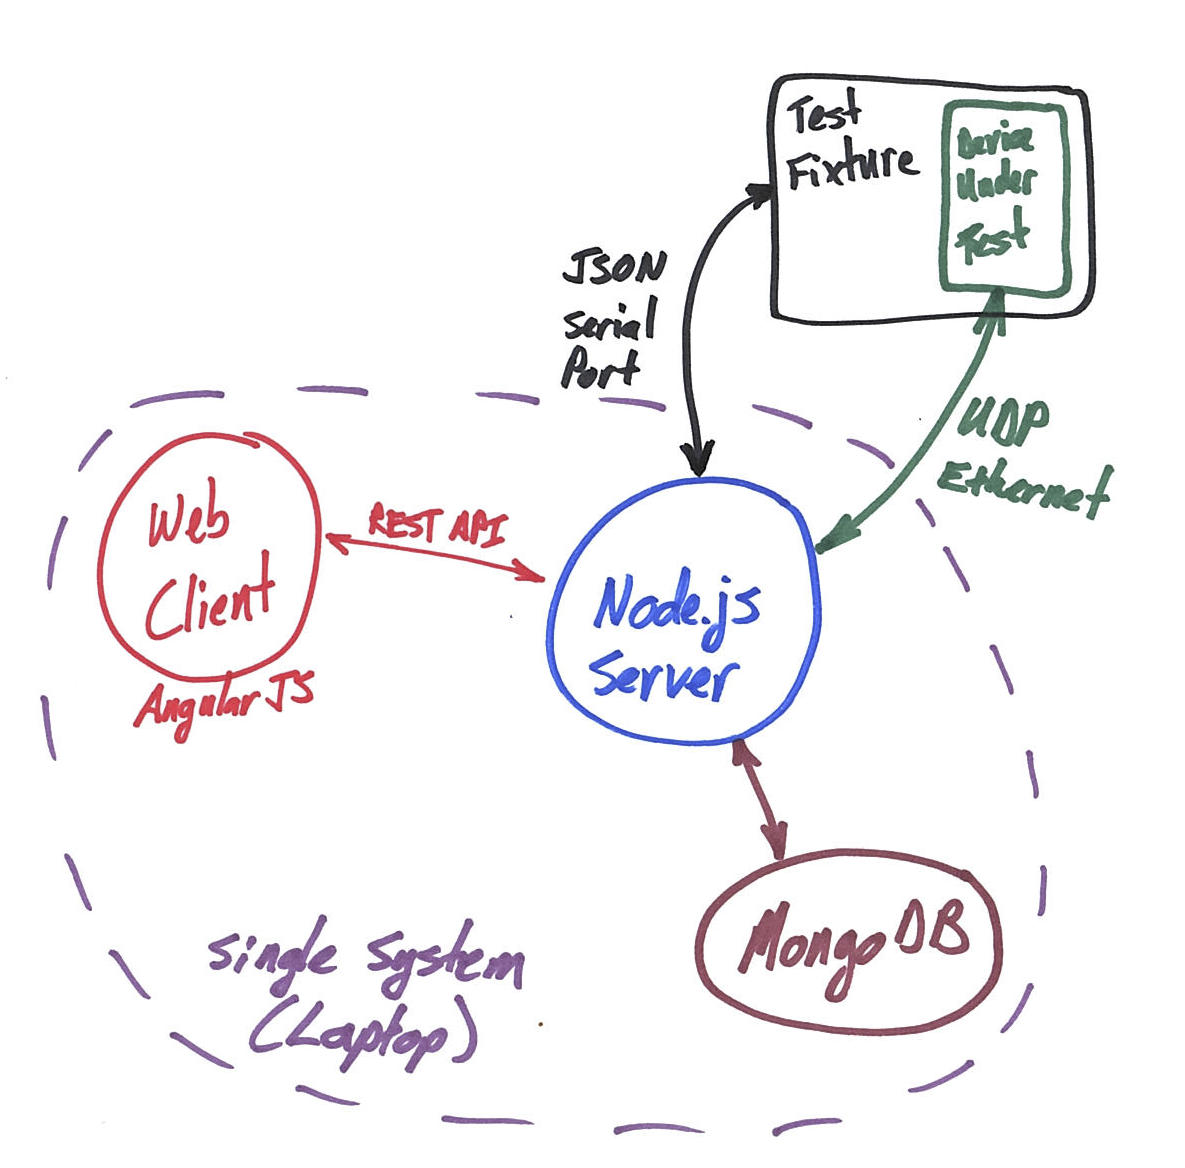 Test
Fixture
Device
Under
Test
JSON
Serial
Port
UDP
Ethernet
Web
Client
AngularJS
REST API
Node.js
Server
MongoDB
Single System
(Laptop)